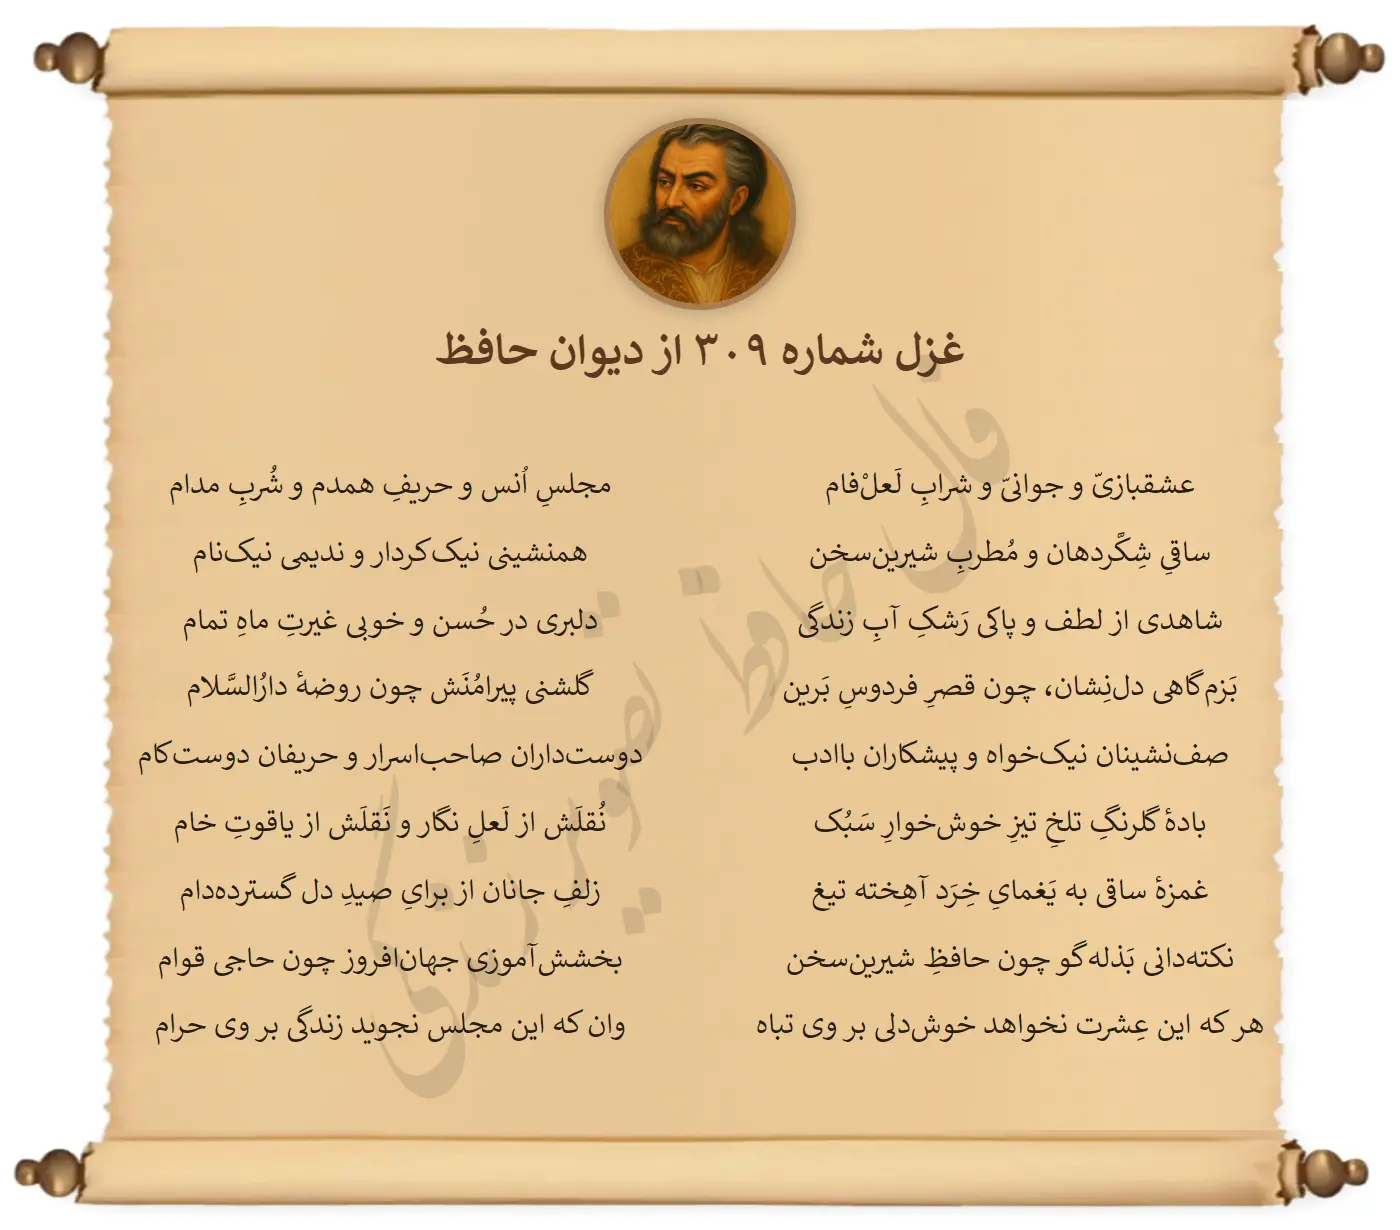 غزل شماره ۳۰۹ از دیوان حافظ
عشقبازیّ و جوانیّ و شرابِ لَعلْ‌فام
مجلسِ اُنس و حریفِ همدم و شُربِ مدام
ساقیِ شِکَّردهان و مُطربِ شیرین‌سخن
همنشینی نیک‌کردار و ندیمی نیک‌نام
شاهدی از لطف و پاکی رَشکِ آبِ زندگی
دلبری در حُسن و خوبی غیرتِ ماهِ تمام
بَزم‌گاهی دل‌نِشان، چون قصرِ فردوسِ بَرین
گلشنی پیرامُنَش چون روضهٔ دارُالسَّلام
صف‌نشینان نیک‌خواه و پیشکاران باادب
دوست‌داران صاحب‌اسرار و حریفان دوست‌کام
بادهٔ گلرنگِ تلخِ تیزِ خوش‌خوارِ سَبُک
نُقلَش از لَعلِ نگار و نَقلَش از یاقوتِ خام
غمزهٔ ساقی به یَغمایِ خِرَد آهِخته تیغ
زلفِ جانان از برایِ صیدِ دل گسترده‌دام
نکته‌دانی بَذله‌گو چون حافظِ شیرین‌سخن
بخشش‌آموزی جهان‌افروز چون حاجی قوام
هر که این عِشرت نخواهد خوش‌دلی بر وی تباه
وان که این مجلس نجوید زندگی بر وی حرام
فال حافظ تصویر زندگی